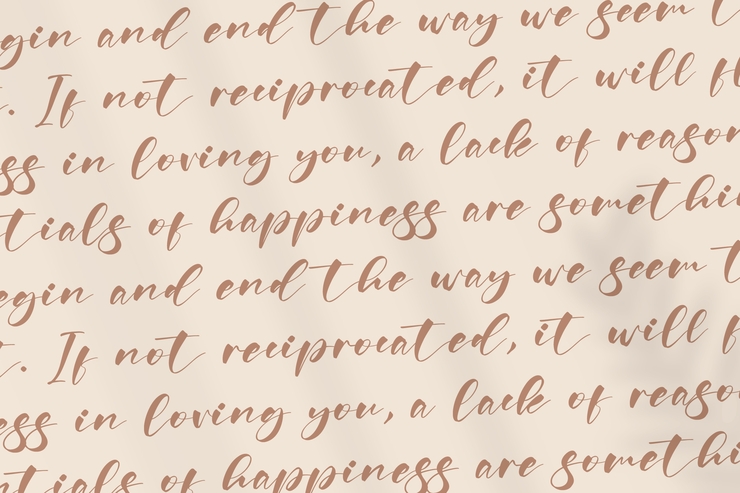 gin and end the way we seem t
. If not reciprocated, it will fl
ss in loving you, a lack of reason
tials of happiness are somethi
egin and end the way we seem t
t. If not reciprocated, it will f
ess in loving you, a lack of reaso
ntials of happiness are somethi